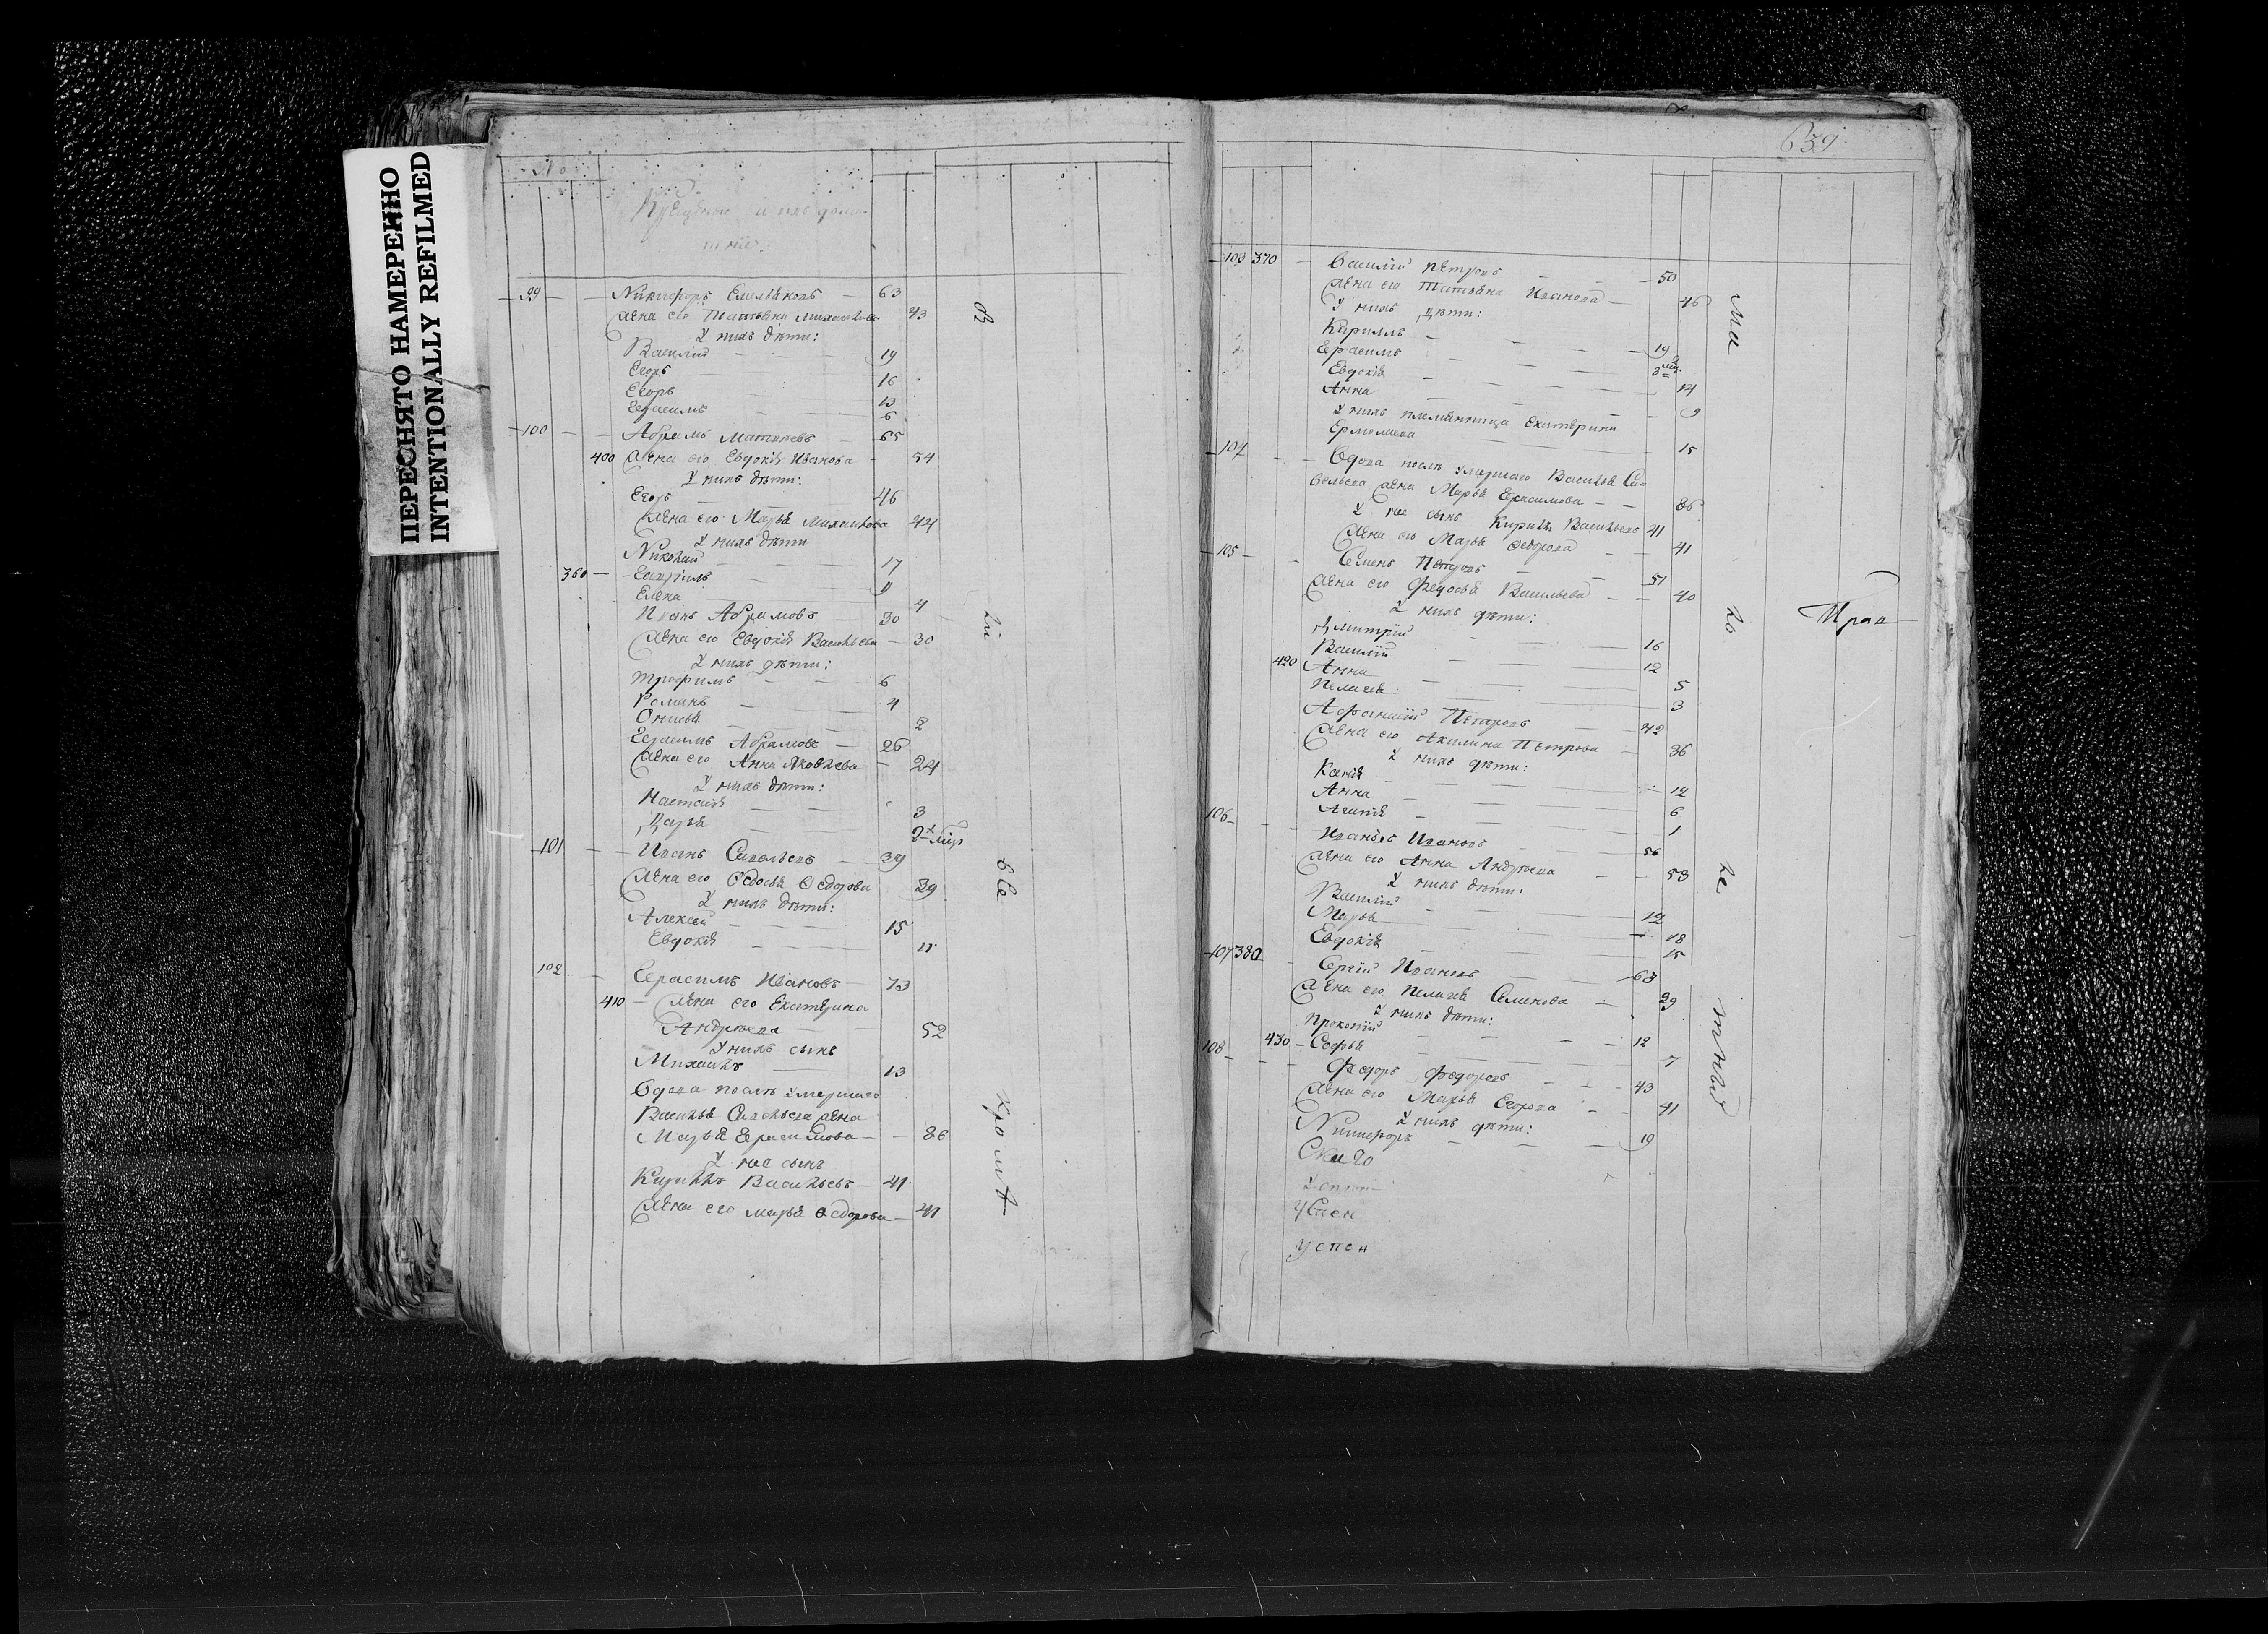 ПЕРЕСНЯТО НАМЕРЕННО
INTENTIONALLY REFILMED
No
Крестьяне и ихъ домаш-
ніе.
99 Никифоръ Емельяновъ 63
Жена его Татьяна Михайлова 43
У нихъ дѣти:
Василій 19
Егоръ 16
Егоръ 13
Герасимъ 6
100 Абрамъ Матвѣевъ 65
400 Жена его Евдокія Иванова 54
У нихъ дѣти:
Егоръ 46
Жена его Марья Михайлова 44
У нихъ дѣти
Николай 17
360 Гаврилъ 9
Елена 4
Иванъ Абрамовъ 30
Жена его Евдокія Васильева 30
У нихъ дѣти:
Трофимъ 6
Романъ 4
Онисья 2
Герасимъ Абрамовъ 26
Жена его Анна Яковлева 24
У нихъ дѣти:
Настасія 3
Дарья 2х мѣр
101 Иванъ Савельевъ 39
Жена его Ѳедосья Ѳедорова 39
У нихъ дѣти:
Алексей 15
Евдокія 11
102 Герасимъ Ивановъ 73
410 Жена его Екатерина
Андреева 52
У нихъ сынъ
Михаилъ 13
Вдова послѣ умершаго
Василья Савельева жена
Марья Герасимова 86
У нее сынъ
Кирилъ Васильевъ 41
Жена его Марья Ѳедорова 41
639
103 370 Василій Петровъ 50
Жена его Татьяна Иванова 46
У нихъ дѣти:
Кириллъ 19
Герасимъ 3
Евдокія 14
Анна 9
У нихъ племянница Екатерина
Ермолаева 15
104 Вдова послѣ умершаго Василья Са-
вельева жена Марья Герасимова 86
У нее сынъ Кирилъ Васильевъ 41
Жена его Марья Ѳедорова 41
105 Семенъ Петровъ 51
Жена его Федосья Васильева 40
У нихъ дѣти:
Дмитрій 16
Василій 12
420 Анна 5
Пелагея 3
Афанасій Петровъ 42
Жена его Акилина Петрова 36
У нихъ дѣти:
Ксенія 12
Анна 6
Агапія 1
106 Ивановъ 56
Жена его Анна Андреева 53
У нихъ дѣти:
Василій 12
Марья 18
Евдокія 15
107 380 Сергій Ивановъ 63
Жена его Пелагея Семенова 39
У нихъ дѣти:
Прокопій 12
430 Софья 7
108 Федоръ Федоровъ 43
Жена его Марья Егорова 41
У нихъ дѣти:
Никифоръ 19
Успен